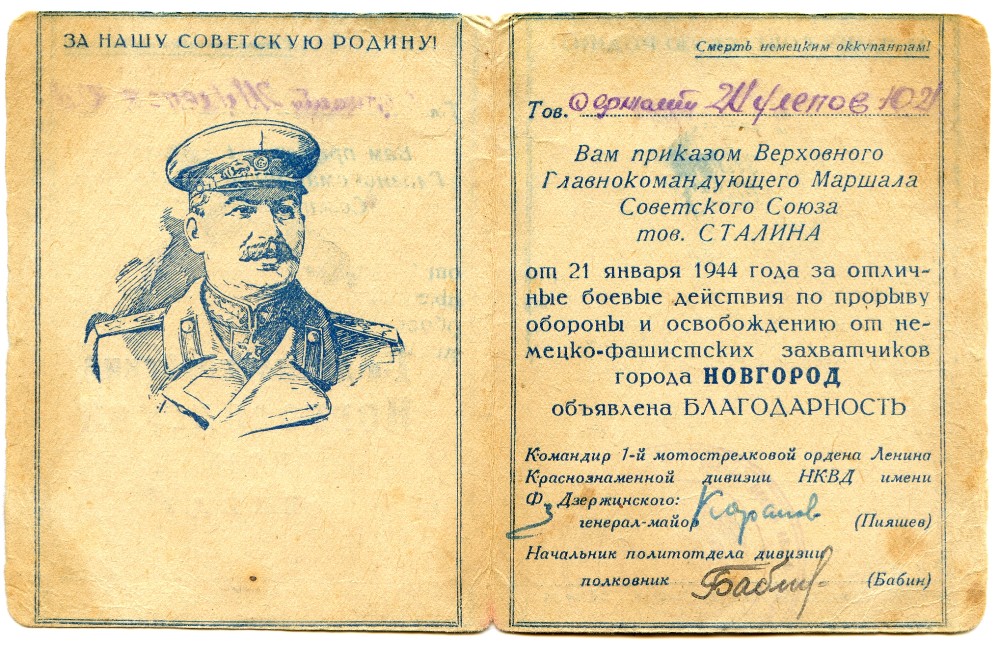 ЗА НАШУ СОВЕТСКУЮ РОДИНУ!
Смерть немецким оккупантам!
Тов. сержант Жулепов Ю.И
Вам приказом Верховного
Главнокомандующего Маршала
Советского Союза
тов. СТАЛИНА
от 21 января 1944 года за отлич-
ные боевые действия по прорыву
обороны и освобождению от не-
мецко-фашистских захватчиков
города НОВГОРОД
объявлена БЛАГОДАРНОСТЬ
Командир 1-й мотострелковой ордена Ленина
Краснознаменной дивизии НКВД имени
Ф. Дзержинского:
генерал-майор (Пияшев)
Начальник политотдела дивизии
полковник Бабин (Бабин)